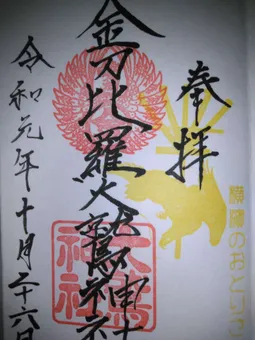 奉拝
横濱のおとりさま
金刀比羅大鷲神社
大鷲
神社
令和元年十月二十六日